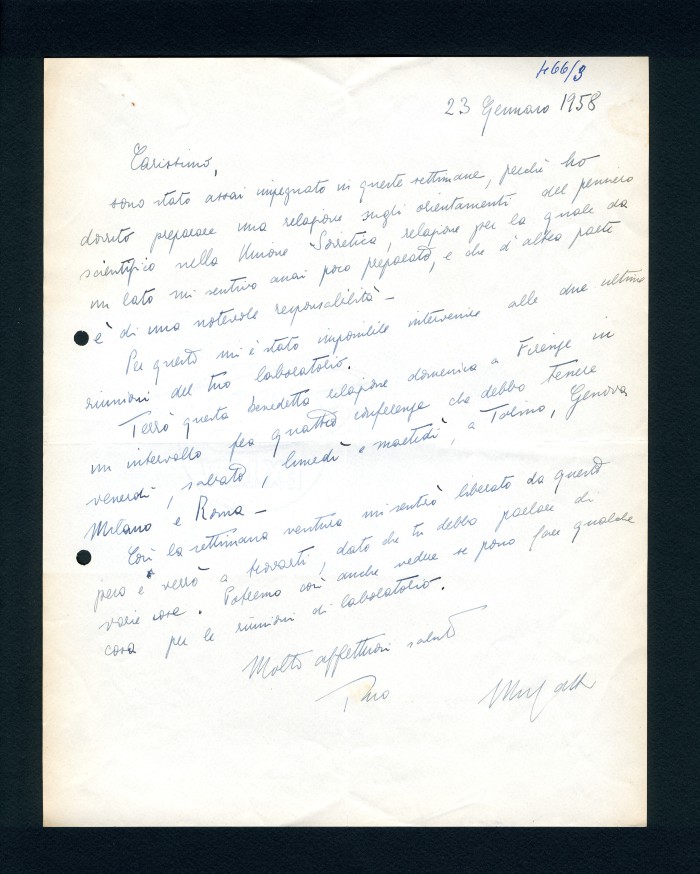 466/3
23 Gennaro 1958
Carissimo,
sono stato assai impegnato in queste settimane, perchè ho
dovuto preparare una relazione sugli orientamenti del pensiero
scientifico nella Unione Sovietica, relazione per la quale da
un lato mi sentivo assai poco preparato, e che d'altra parte
è di una notevole responsabilità -
Per questo mi è stato impossibile intervenire alle due ultime
riunioni del tuo laboratorio.
Terrò questa benedetta relazione domenica a Firenze in
un intervallo fra quattro conferenze che debbo tenere
venerdì, sabato, lunedì e martedì, a Torino, Genova
Milano e Roma -
Così la settimana ventura mi sentirò liberato da questo
peso e verrò a trovarti, dato che ti debbo parlare di
varie cose. Potremo così anche vedere se posso fare qualche
cosa per le riunioni di laboratorio.
Molto affettuosi saluti
Tuo